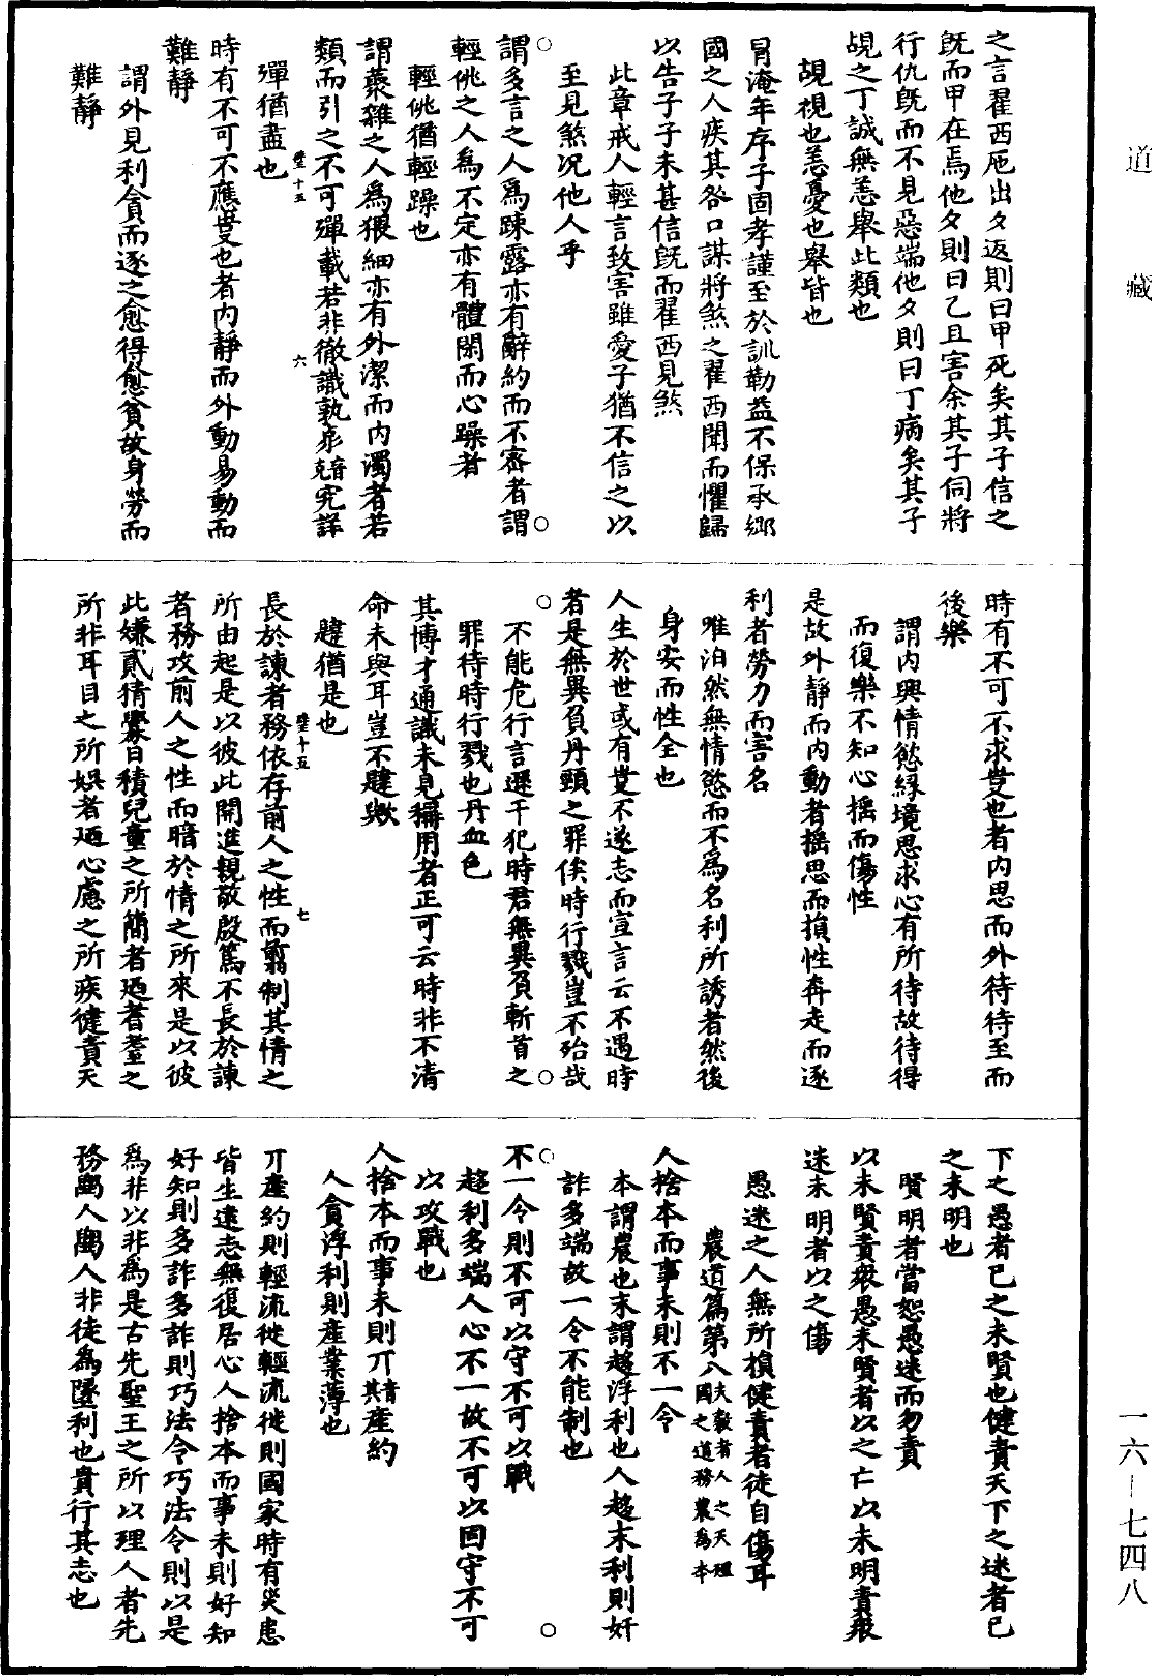 道藏
之言翟西戹出夕返則曰甲死矣其子信之
旣而甲在焉他夕則曰乙且害余其子伺將
行仇旣而不見惡端他夕則曰丁病矣其子
覘之丁誠無恙舉此類也
覘視也恙憂也舉皆也
冐淹年序子固孝謹至於訓勒益不保承鄉
國之人疾其咎口謀將煞之翟西聞而懼歸
以告子子未甚信旣而翟西見煞
此章戒人輕言致害雖愛子猶不信之以
至見煞況他人乎
謂多言之人爲踈露亦有辭約而不密者謂
輕佻之人爲不定亦有體閑而心躁者
輕佻猶輕躁也
謂藂雜之人爲猥細亦有外潔而內濁者若
類而引之不可殫載若非徹識孰究詳
殫猶盡也
時有不可不應叓也者內靜而外動易動而
難靜
謂外見利貪而逐之愈得愈貧故身勞而
難靜
壑十五 六
時有不可不求叓也者內思而外待待至而
後樂
謂內興情慾緣境思求心有所待故待得
而復樂不知心搖而傷性
是故外靜而內動者搖思而損性奔走而逐
利者勞力而害名
唯泊然無情慾而不爲名利所誘者然後
身安而性全也
人生於世或有叓不遂志而宣言云不遇時
者是無異負丹頸之罪俟時行戮豈不殆哉
不能危行言遜干犯時君無異負斬首之
罪待時行戮也丹血色
其博才通識未見稱用者正可云時非不清
命未與耳豈不韙歟
韙猶是也
長於諫者務依存前人之性而翦制其情之
所由起是以彼此開進親敬殷篤不長於諫
者務攻前人之性而暗於情之所來是以彼
此嫌貳猜釁日積兒童之所簡者廼耆耋之
所非耳目之所娛者廼心慮之所疾健責天
壑十五 七
下之愚者已之未賢也健責天下之迷者已
之未明也
賢明者當恕愚迷而勿責
以未賢責衆愚未賢者以之亡以未明責衆
迷未明者以之傷
愚迷之人無所損健責者徒自傷耳
農道篇第八夫穀者人之天理國之道務農爲本
人捨本而事末則不一令
本謂農也末謂趍浮利也人趍末利則奸
詐多端故一令不能制也
不一令則不可以守不可以戰
趍利多端人心不一故不可以固守不可
以攻戰也
人捨本而事末則丌音其產約
人貪浮利則產業薄也
丌產約則輕流徙輕流徙則國家時有災患
皆生遠志無復居心人捨本而事末則好知
好知則多詐多詐則巧法令巧法令則以是
爲非以非爲是古先聖王之所以理人者先
務農人農人非徒爲墬利也貴行其志也
一六－七四八